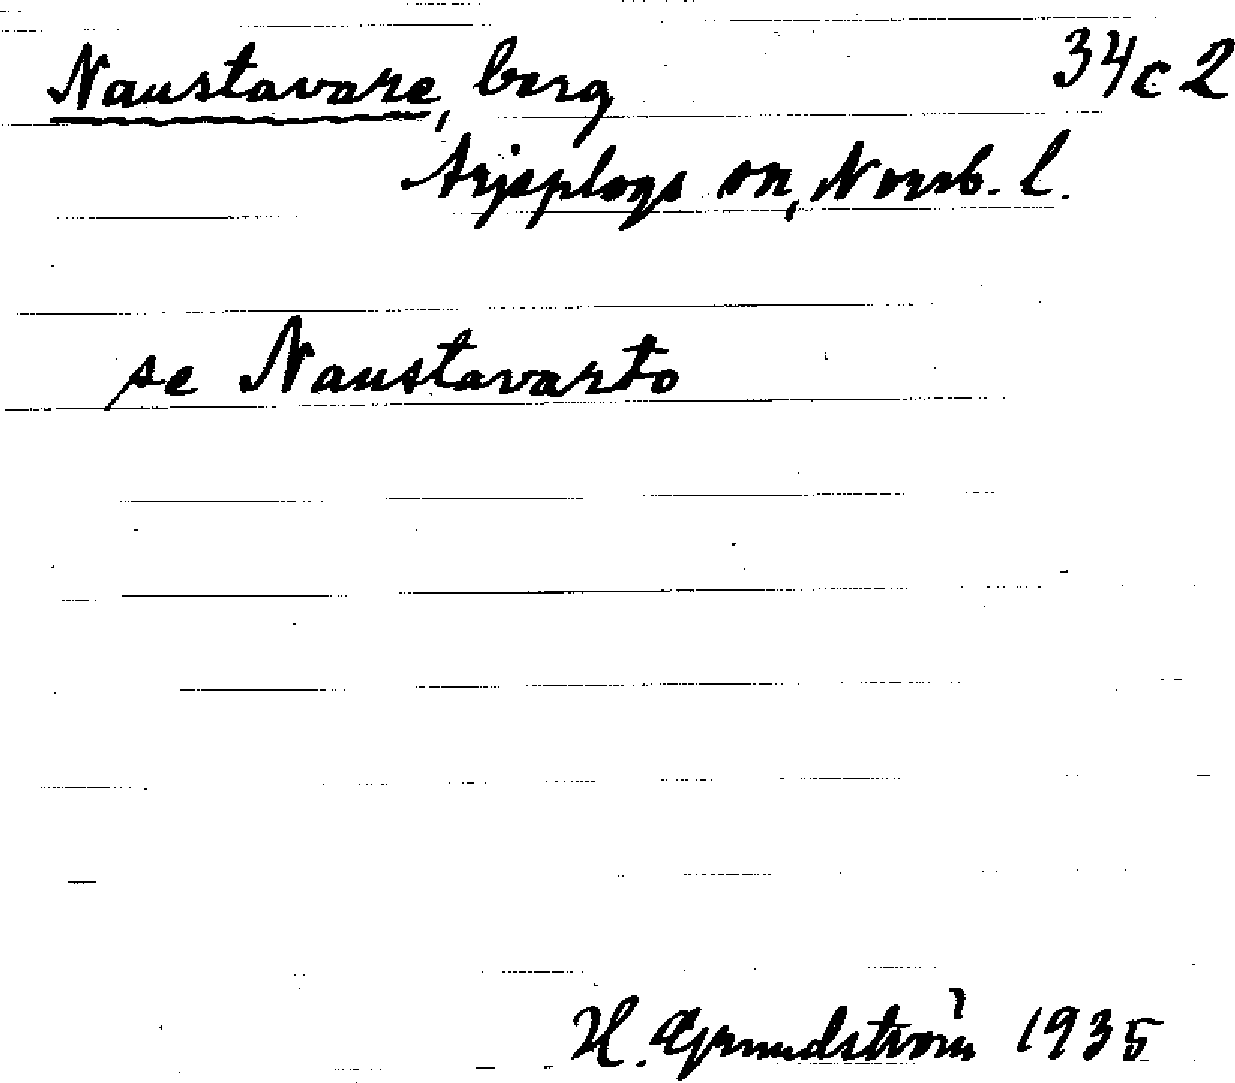 Naustavare, berg 34c2
Arjsplogs sn, Norrb. l.
se Naustavarto
H. Grundström 1935